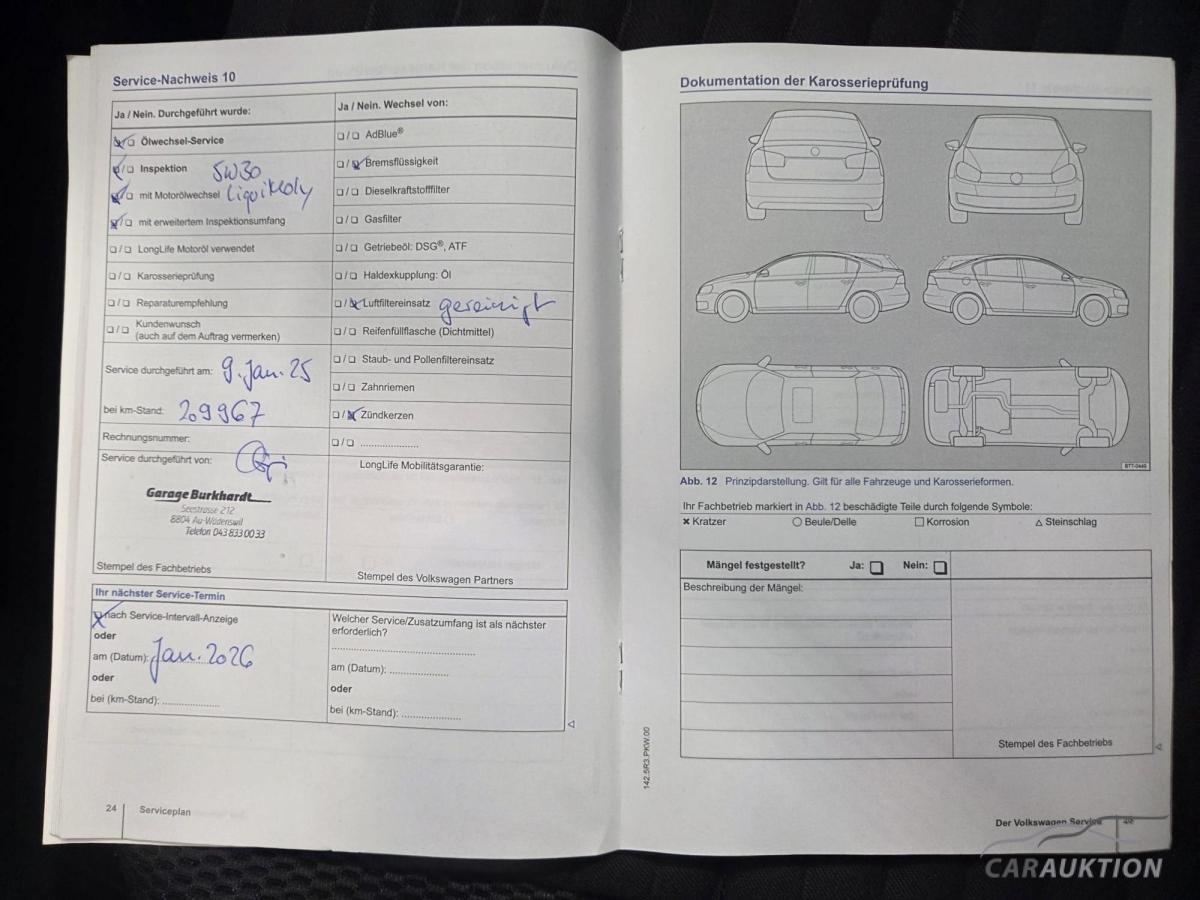 Service-Nachweis 10
Ja / Nein. Durchgeführt wurde:
❑/❑ Ölwechsel-Service
❑/❑ Inspektion 5W30
❑/❑ mit Motorölwechsel Liqui Moly
❑/❑ mit erweitertem Inspektionsumfang
❑/❑ LongLife Motoröl verwendet
❑/❑ Karosserieprüfung
❑/❑ Reparaturempfehlung
❑/❑ Kundenwunsch
(auch auf dem Auftrag vermerken)
Service durchgeführt am: 9. Jan. 25
bei km-Stand: 209967
Rechnungsnummer:
Service durchgeführt von:
Garage Burkhardt
Seestrasse 212
8804 Au-Wädenswil
Telefon 043 833 00 33
Stempel des Fachbetriebs
Ja / Nein. Wechsel von:
❑/❑ AdBlue®
❑/❑ Bremsflüssigkeit
❑/❑ Dieselkraftstofffilter
❑/❑ Gasfilter
❑/❑ Getriebeöl: DSG®, ATF
❑/❑ Haldexkupplung: Öl
❑/❑ Luftfiltereinsatz gereinigt
❑/❑ Reifenfüllflasche (Dichtmittel)
❑/❑ Staub- und Pollenfiltereinsatz
❑/❑ Zahnriemen
❑/❑ Zündkerzen
❑/❑ .....................
LongLife Mobilitätsgarantie:
Stempel des Volkswagen Partners
Ihr nächster Service-Termin
❑ nach Service-Intervall-Anzeige
oder
am (Datum): Jan. 2026
oder
bei (km-Stand): ....................
Welcher Service/Zusatzumfang ist als nächster
erforderlich?
..................................................
am (Datum): ....................
oder
bei (km-Stand): ....................
24 Serviceplan
Dokumentation der Karosserieprüfung
BTT-0449
Abb. 12 Prinzipdarstellung. Gilt für alle Fahrzeuge und Karosserieformen.
Ihr Fachbetrieb markiert in Abb. 12 beschädigte Teile durch folgende Symbole:
✕ Kratzer ○ Beule/Delle □ Korrosion △ Steinschlag
Mängel festgestellt? Ja: ❑ Nein: ❑
Beschreibung der Mängel:
Stempel des Fachbetriebs
142.5R3.PKW.00
Der Volkswagen Service
CARAUKTION